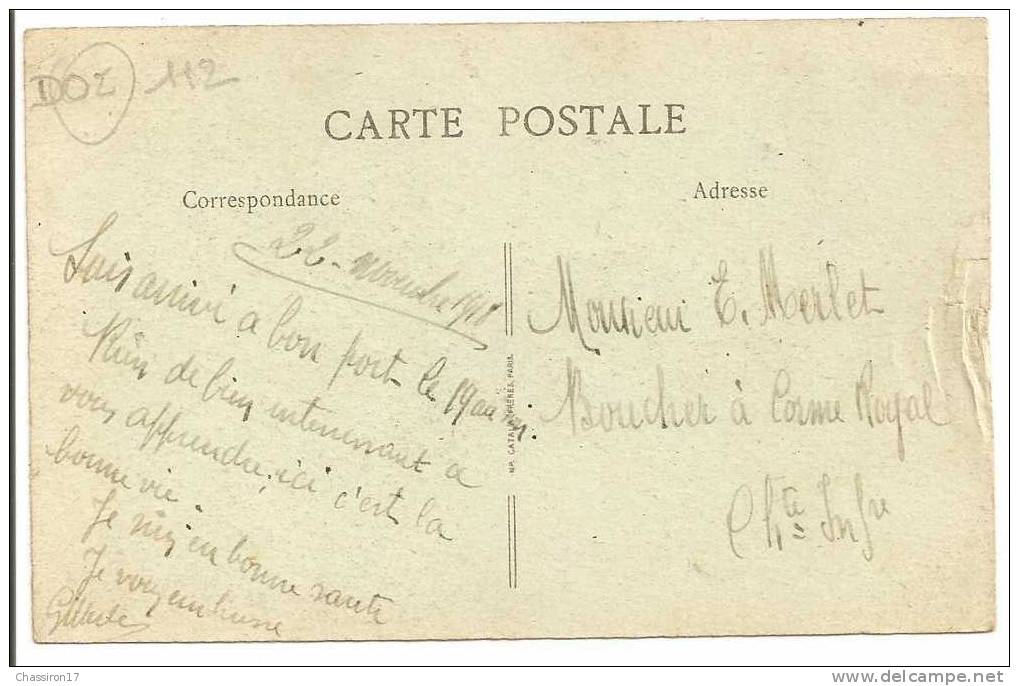 DOI 112
CARTE POSTALE
Correspondance
22 novembre 1918
Suis arrivé a bon port le 19 au
Rien de bien interessant a
vous apprendre, ici c'est la
bonne vie.
Je suis en bonne sante
Je vous embrasse
IMP. CATALA FRERES, PARIS.
Adresse
Monsieur E. Merlet
Boucher à Corme Royal
Chte Infre
Chassiron17
www.delcampe.net